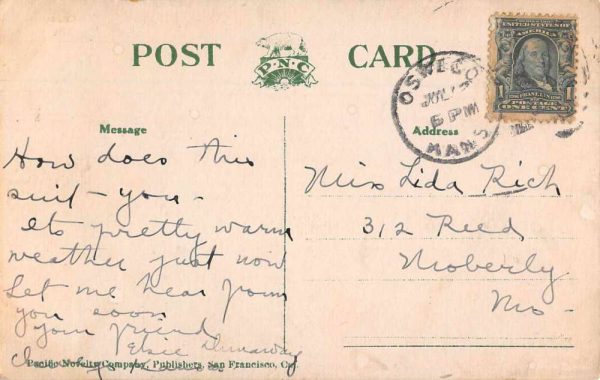 POST CARD
P·N·C
UNITED STATES OF AMERICA
FRANKLIN
1 POSTAGE 1
ONE CENT
OSWEGO
JUL
6 PM
KANS
Message
Address
How does this
suit - you -
Its pretty warm
weather just now
Let me hear from
you soon
your friend
Elsie Dunaway
Miss Lida Rich
312 Reed
Moberly
Mo -
Pacific Novelty Company, Publishers, San Francisco, Cal.